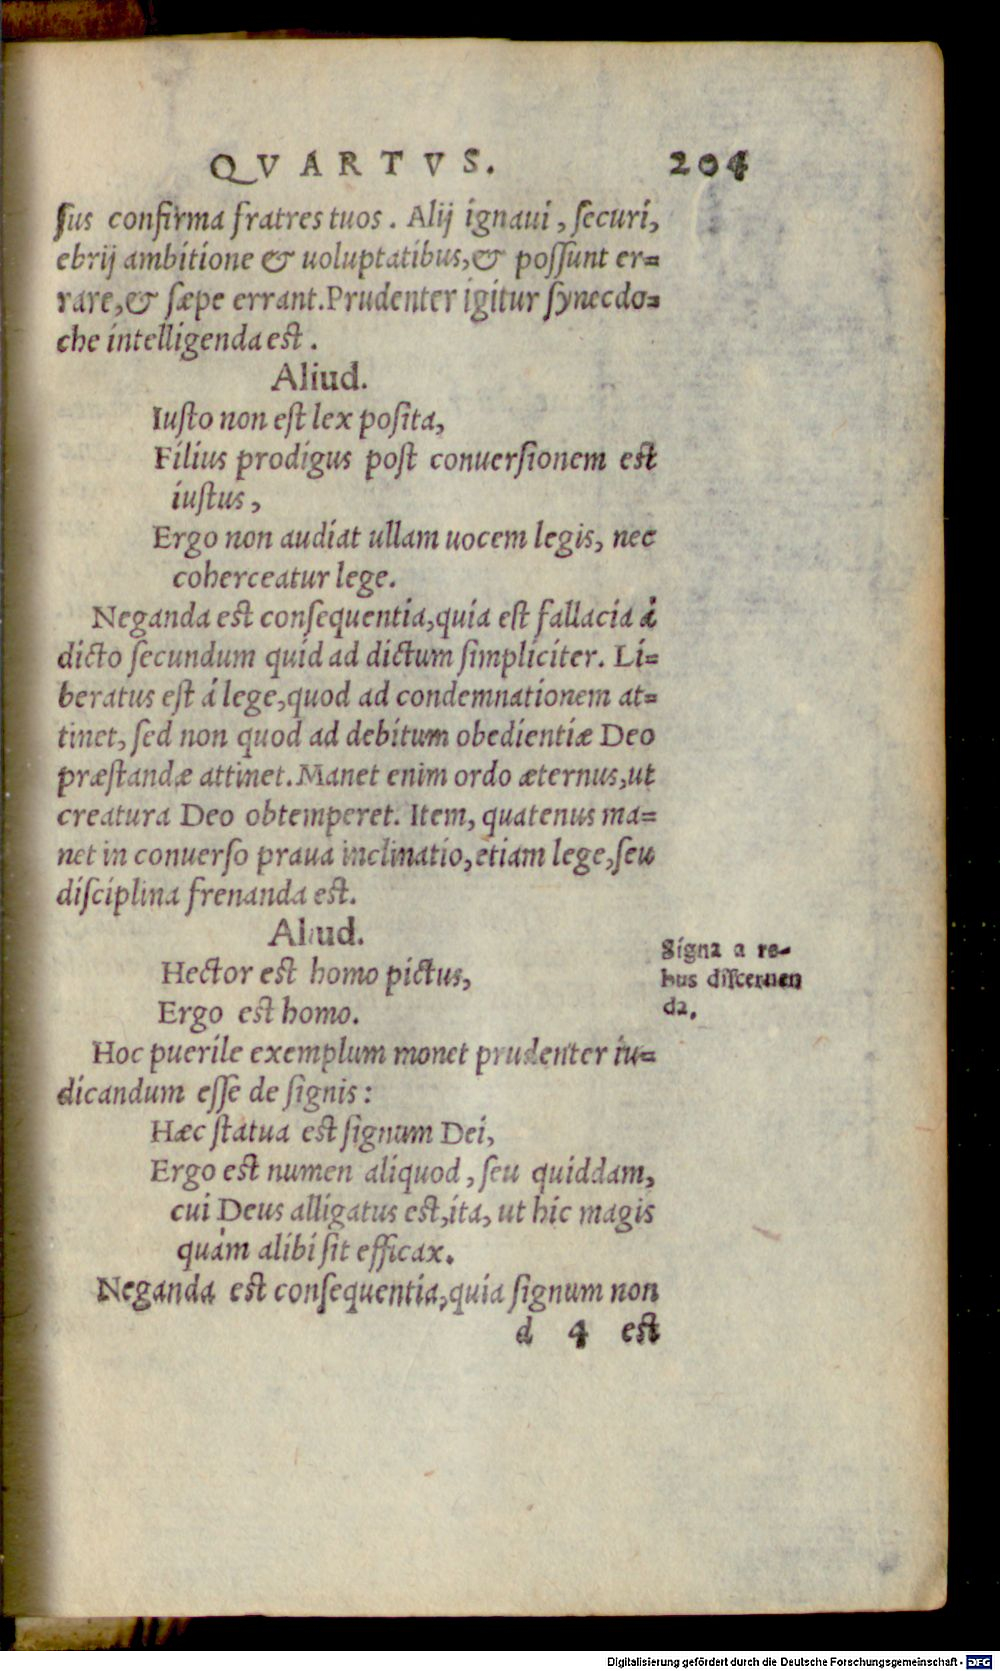 QVARTVS. 204
sus confirma fratres tuos. Alij ignaui, securi,
ebrij ambitione & uoluptatibus, & possunt er=
rare, & sæpe errant. Prudenter igitur synecdo=
che intelligenda est.
Aliud.
Iusto non est lex posita,
Filius prodigus post conuersionem est
iustus,
Ergo non audiat ullam uocem legis, nec
coherceatur lege.
Neganda est consequentia, quia est fallacia à
dicto secundum quid ad dictum simpliciter. Li=
beratus est á lege, quod ad condemnationem at=
tinet, sed non quod ad debitum obedientiæ Deo
præstandæ attinet. Manet enim ordo æternus, ut
creatura Deo obtemperet. Item, quatenus ma=
net in conuerso praua inclinatio, etiam lege, seu
disciplina frenanda est.
Aliud.
Hector est homo pictus,
Ergo est homo.
Signa a re-
bus discernen
da.
Hoc puerile exemplum monet prudenter iu=
dicandum esse de signis:
Hæc statua est signum Dei,
Ergo est numen aliquod, seu quiddam,
cui Deus alligatus est, ita, ut hic magis
quàm alibi sit efficax.
Neganda est consequentia, quia signum non
d 4 est
Digitalisierung gefördert durch die Deutsche Forschungsgemeinschaft - DFG